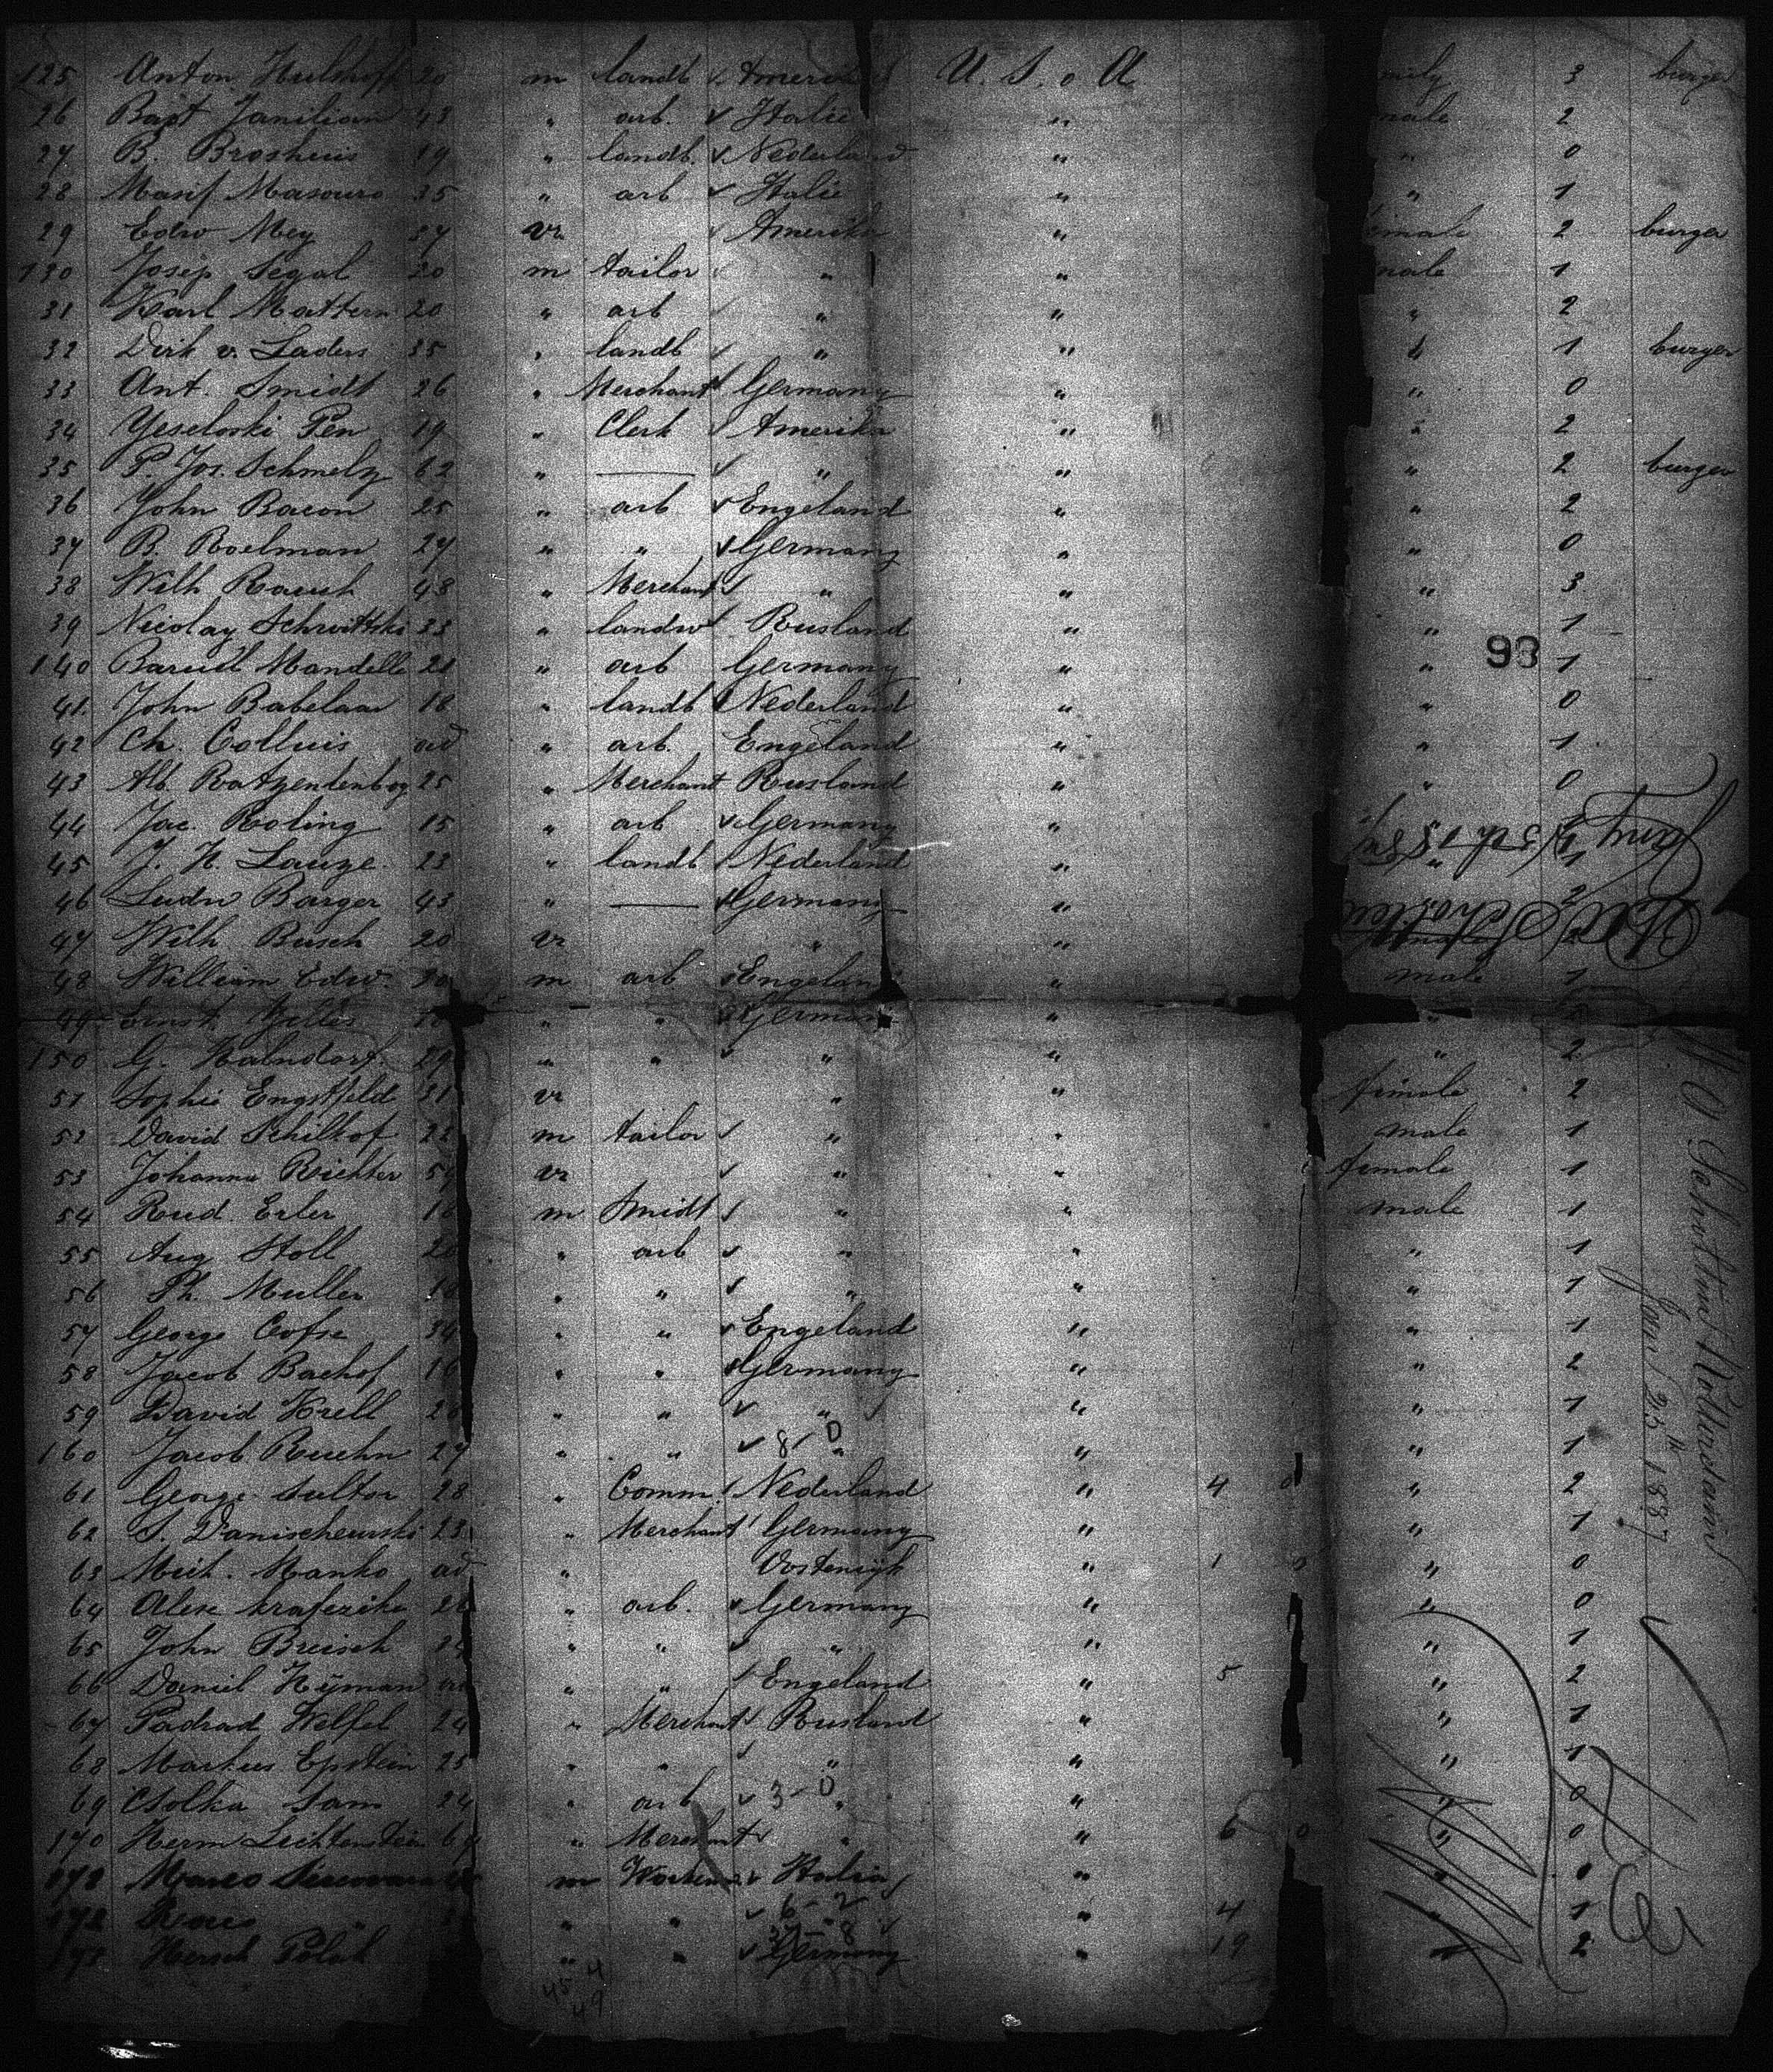 125 Anton Hulshoff 20 m landb Amerika U. S. o A. mily 3 burger
26 Bapt Janilian 43 " arb. Italie " male 2
27 B. Broshuis 19 " landb. Nederland " " 0
28 Masif Masouro 35 " arb Italie " " 1
29 Edw Mey 37 vr Amerika " emale 2 burger
130 Josep Segal 20 m tailor " " male 1
31 Karl Mattern 20 " arb " " " 2
32 Dirk v. Laders 35 " landb " " " 1 burger
33 Ant. Smidt 26 " Merchant Germany " " 0
34 Yeseloski Pen 19 " Clerk Amerika " " 2
35 P. Jos. Schmelz 62 " — " " " 2 burger
36 John Bacon 25 " arb Engeland " " 2
37 B. Roelman 27 " " Germany " " 0
38 Wilh Rauch 48 " Merchant " " " 3
39 Nicolay Schwittski 33 " landw Rusland " " 1
140 Baruil Mandelle 21 " arb Germany " " 1
93
41. John Babelaar 18 " landb Nederland " " 0
42 Ch. Colluis ad " arb. Engeland " " 1
43 Alb. Ratzendenbog 25 " Merchant Rusland " " 0
44 Jac. Roling 15 " arb Germany "
45 J. H. Lauze. 23 " landb Nederland " " 1
46 Ludw Barger 43 " — Germany " 2
47 Wilh. Busch 20 vr " " 2
48 William Edw. 20 m arb Engeland " male 1
49 Ernst Gelles " " Germany " "
150 G. Halndorf. 29 " " " " " 2
51 Sophie Engstfeld 31 vr " " fimale 2
52 David Schilhof 22 m tailor " " male 1
53 Johanna Richter 54 vr " " fimale 1
54 Rud. Erler 16 m Smidt " " male 1
55 Aug Stoll 20 " arb " " " 1
56 Ph. Muller 18 " " " " " 1
57 George Cofse 34 " " Engeland " " 1
58 Jacob Bachof 16 " " Germany " " 2
59 David Krell 26 " " " " " 1
160 Jacob Ruehn 27 " " 8-0 " " " 1
61 George Sultor 28 " Comm. Nederland " 4 0 " 2
62 S. Danischewski 23 " Merchant Germany " " 1
63 Mich. Hanko ad " Oostenrijk " 1 0 " 0
64 Alex krafezike 26 " arb. Germany " " 0
65 John Breisch 25 " " " " " 1
66 Daniel Hijman ad " " Engeland " 5 " 2
67 Padrad Welfel 24 " Merchant Rusland " " 1
68 Markus Epstein 25 " " " " " 1
69 Csolka Sam 24 " arb 3-0 " " " 0
170 Herm Lichtenstein 64 " Merchant " " 6 0 " 0
172 m Italia " "
172 " " 6-2 " " 4 " 1
173 Hersch Polak " " 37-8 Germany " 19 " 2
45 4
49
W. A. Scholten Rotterdam
Jan 25th 1887